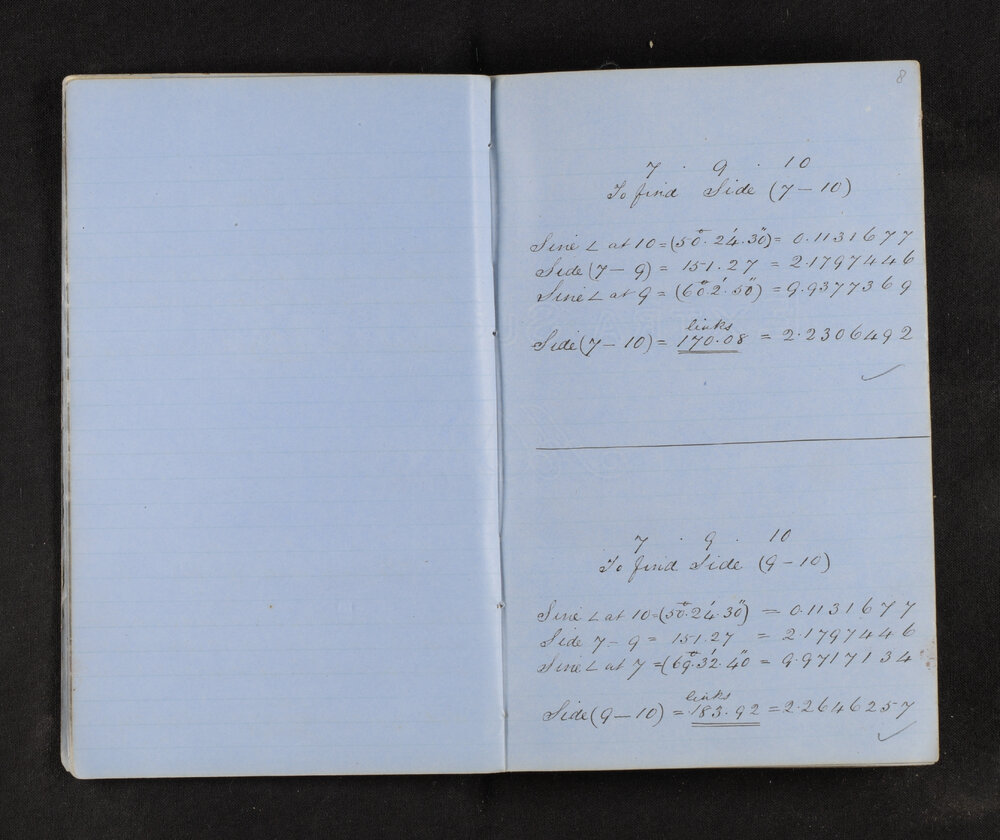 8
7 . 9 . 10
To find Side (7 – 10)
Sine ∠ at 10 = (50°. 24'. 30") = 0.1131677
Side (7 – 9) = 151.27 = 2.1797446
Sine ∠ at 9 = (60°. 2'. 50") = 9.9377369
links
Side (7 – 10) = 170.08 = 2.2306492
7 . 9 . 10
To find Side (9 – 10)
Sine ∠ at 10 = (50°. 24'. 30") = 0.1131677
Side 7 – 9 = 151.27 = 2.1797446
Sine ∠ at 7 = (69°. 32'. 40" = 9.9717134
links
Side (9 – 10) = 183.92 = 2.2646257